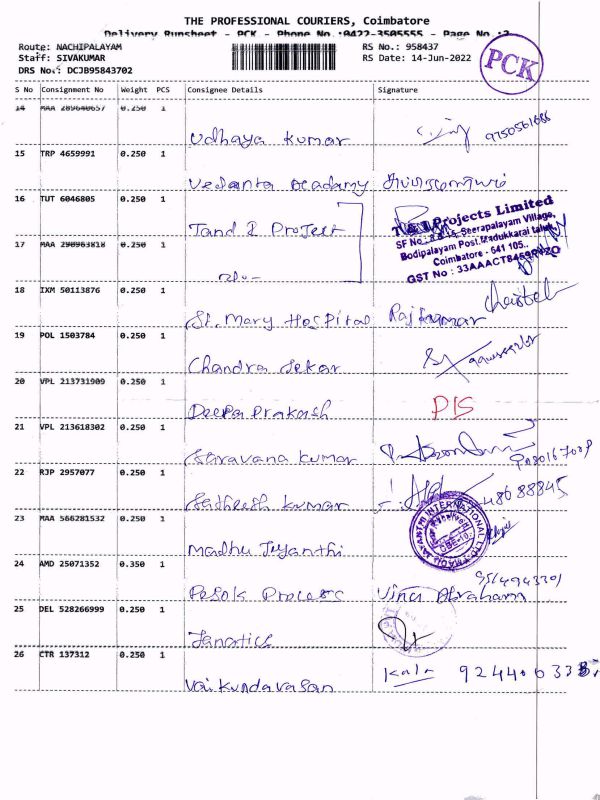 THE PROFESSIONAL COURIERS, Coimbatore
Delivery Runsheet - PCK - Phone No.:0422-3505555 - Page No.:2
Route: NACHIPALAYAM
RS No.: 958437
Staff: SIVAKUMAR
RS Date: 14-Jun-2022
DRS No.: DCJB95843702
PCK
S No Consignment No Weight PCS Consignee Details Signature
14 MAA 289640657 0.250 1
Udhaya Kumar 9750561686
15 TRP 4659991 0.250 1
Vedanta Academy
16 TUT 6046805 0.250 1
T and I Project
Projects Limited
Seerapalayam Village,
Bodipalayam Post, Madukkarai taluk,
Coimbatore - 641 105.
GST No : 33AAACT8459R1ZO
17 MAA 290963818 0.250 1
- do -
18 IXM 50113876 0.250 1
St. Mary Hospital Rajkumar
19 POL 1503784 0.250 1
Chandra Sekar
20 VPL 213731909 0.250 1
Deepa Prakash DIS
21 VPL 213618302 0.250 1
Saravana Kumar
22 RJP 2957077 0.250 1
Satheesh Kumar
23 MAA 566281532 0.250 1
Madhu Jeyanthi
MADHU JAYANTHI INTERNATIONAL
24 AMD 25071352 0.350 1
Pesok Process Vinu Abraham
25 DEL 528266999 0.250 1
Fanatics
26 CTR 137312 0.250 1
Vaikundavasan Kala